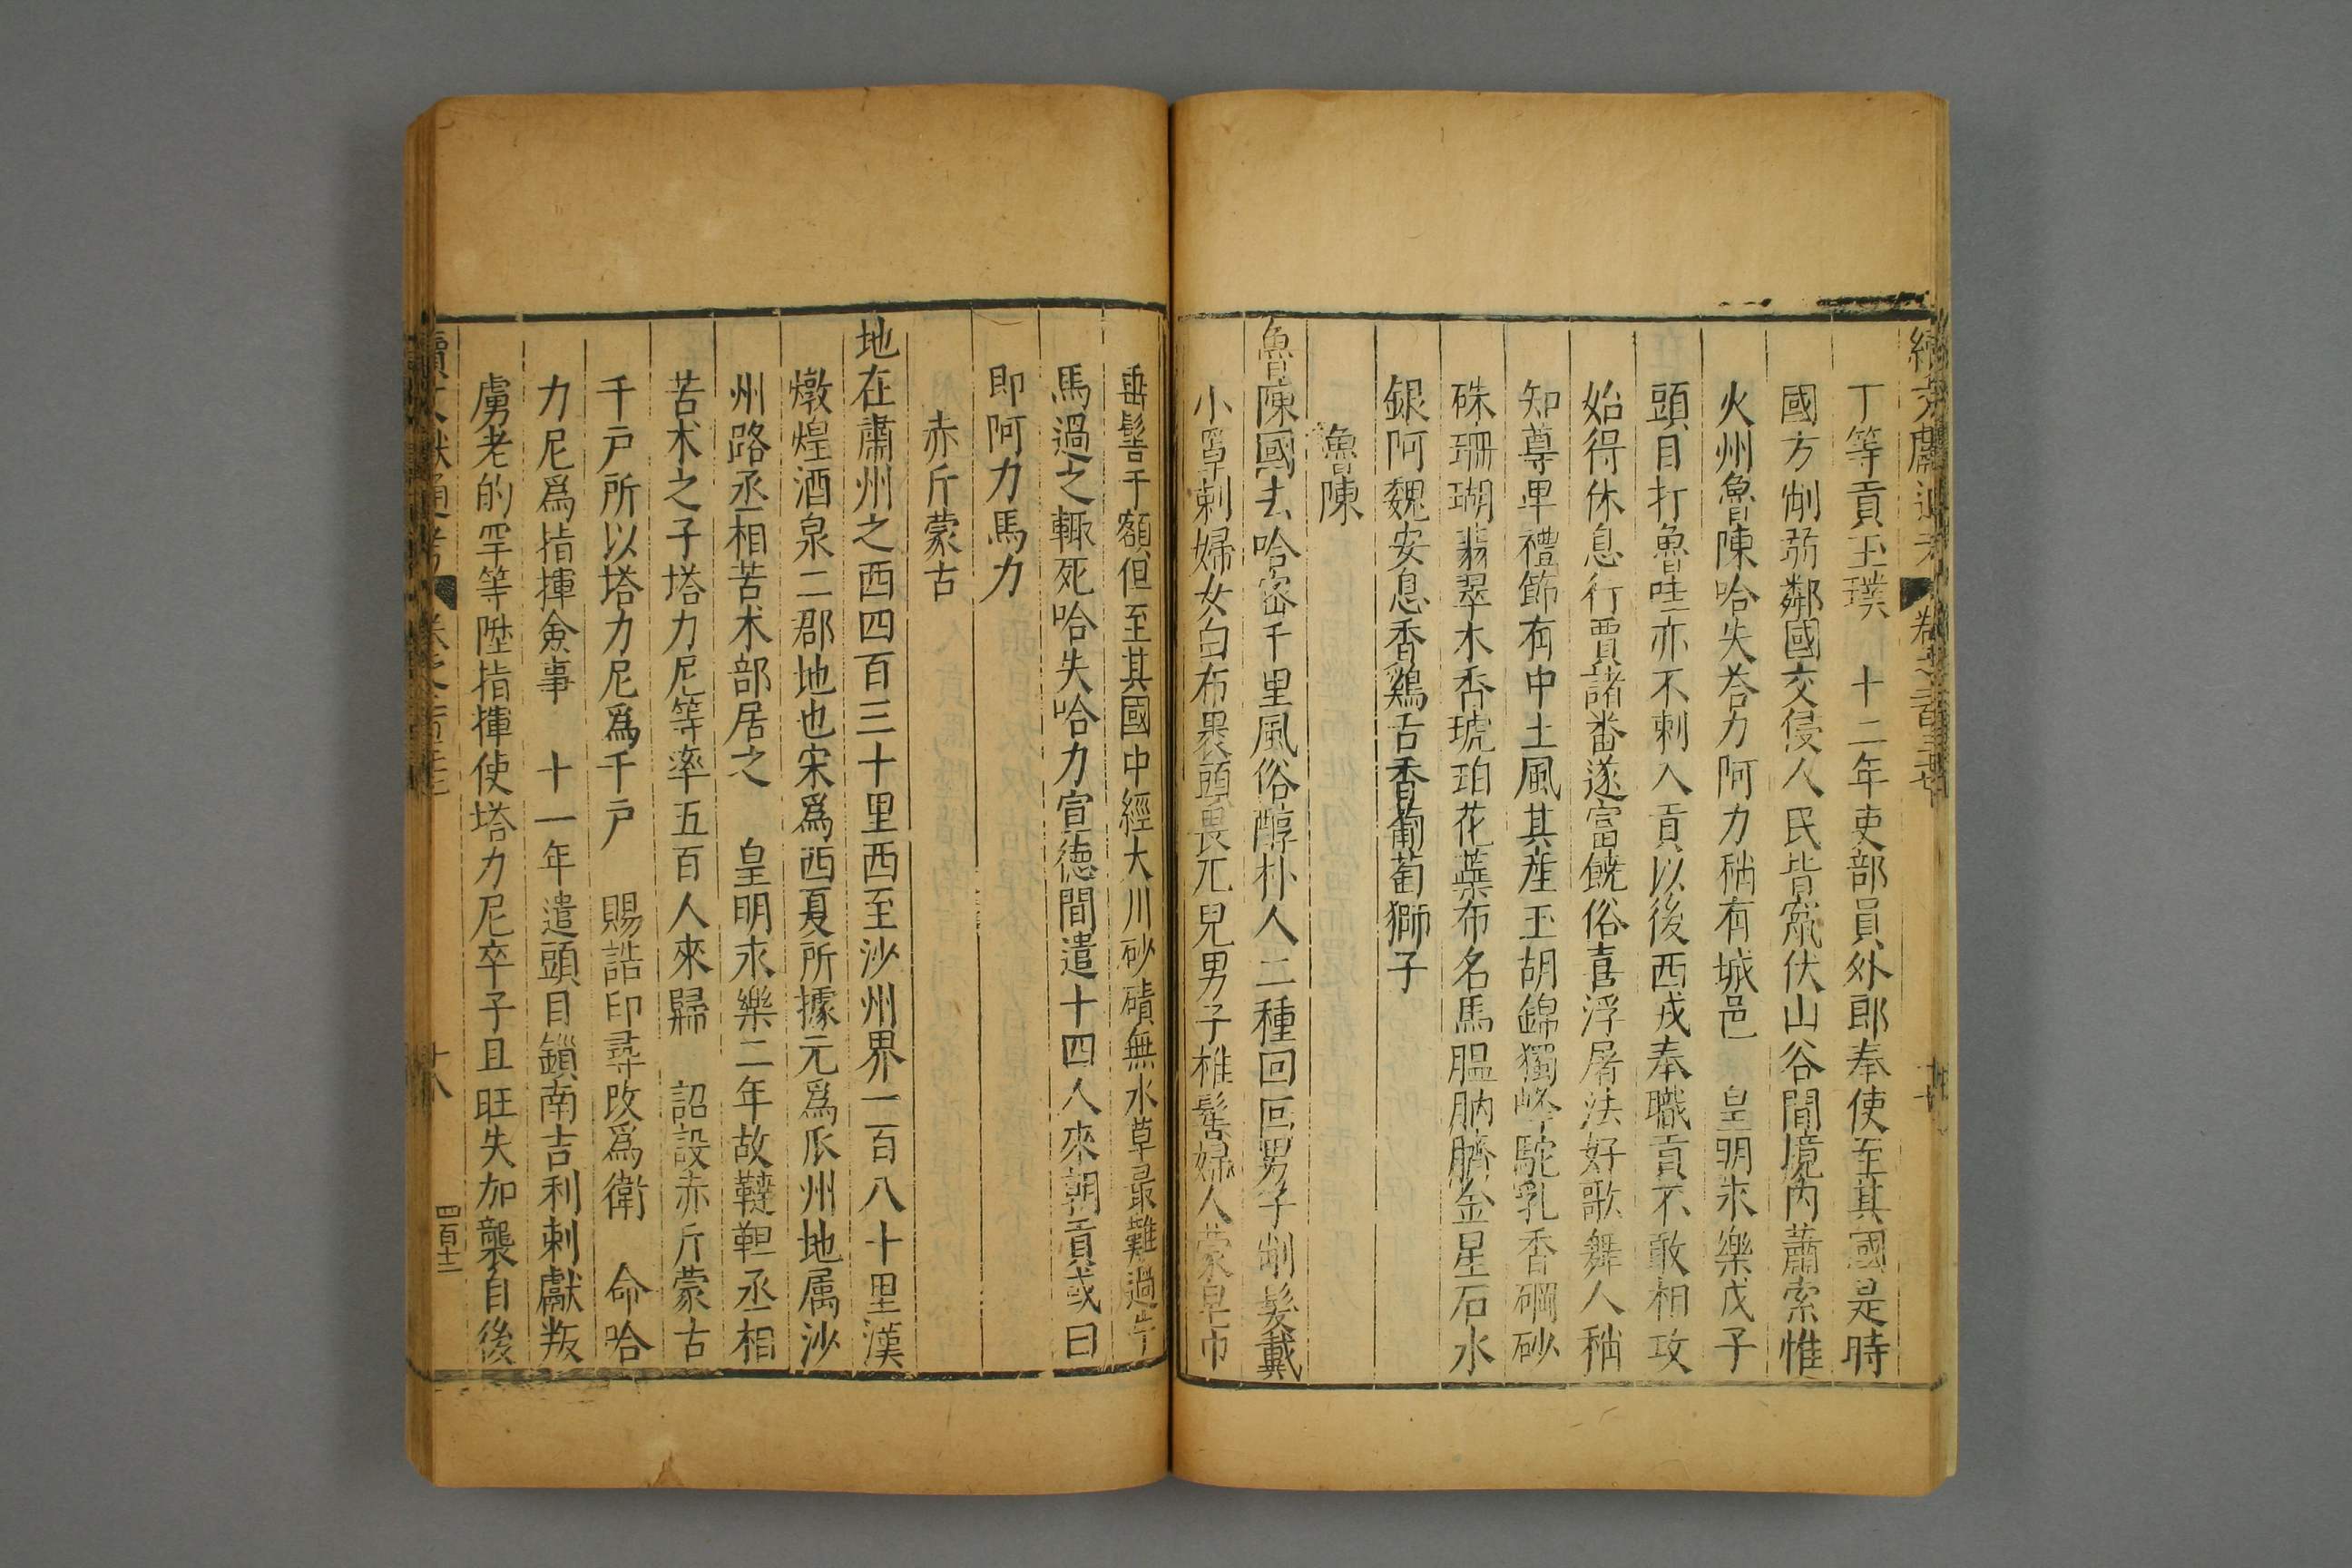 續文獻通考 卷之二百三十七
丁等貢玉璞 十二年吏部員外郎奉使至其國是時
國方削弱鄰國交侵人民皆竄伏山谷間境內蕭索惟
火州魯陳哈失荅力阿力稍有城邑 皇明永樂戊子
頭目打魯哇亦不剌入貢以後西戎奉職貢不敢相攻
始得休息行賈諸畨遂富饒俗喜浮屠法好歌舞人稍
知尊卑禮節有中土風其産玉胡錦獨峰駝乳香硇砂
硃珊瑚翡翠木香琥珀花蘂布名馬膃肭臍金星石水
銀阿魏安息香鷄舌香葡萄獅子
魯陳
魯陳國去哈密千里風俗醇朴人二種回回男子削髮戴
小罩剌婦女白布裹頭畏兀兒男子椎髻婦人蒙皂巾
垂髻于額但至其國中經大川砂磧無水草最難過牛
馬過之輒死哈失哈力宣德間遣十四人來朝貢或曰
即阿力馬力
赤斤蒙古
地在肅州之西四百三十里西至沙州界一百八十里漢
燉煌酒泉二郡地也宋爲西夏所據元爲瓜州地属沙
州路丞相苦术部居之 皇明永樂二年故韃靼丞相
苦术之子塔力尼等率五百人來歸 詔設赤斤蒙古
千戸所以塔力尼爲千戸 賜誥印尋改爲衛 命哈
力尼爲指揮僉事 十一年遣頭目鎖南吉利剌獻叛
虜老的罕等陞指揮使塔力尼卒子且旺失加襲自後
續文獻通考 卷之二百三十七 十八 四百十二